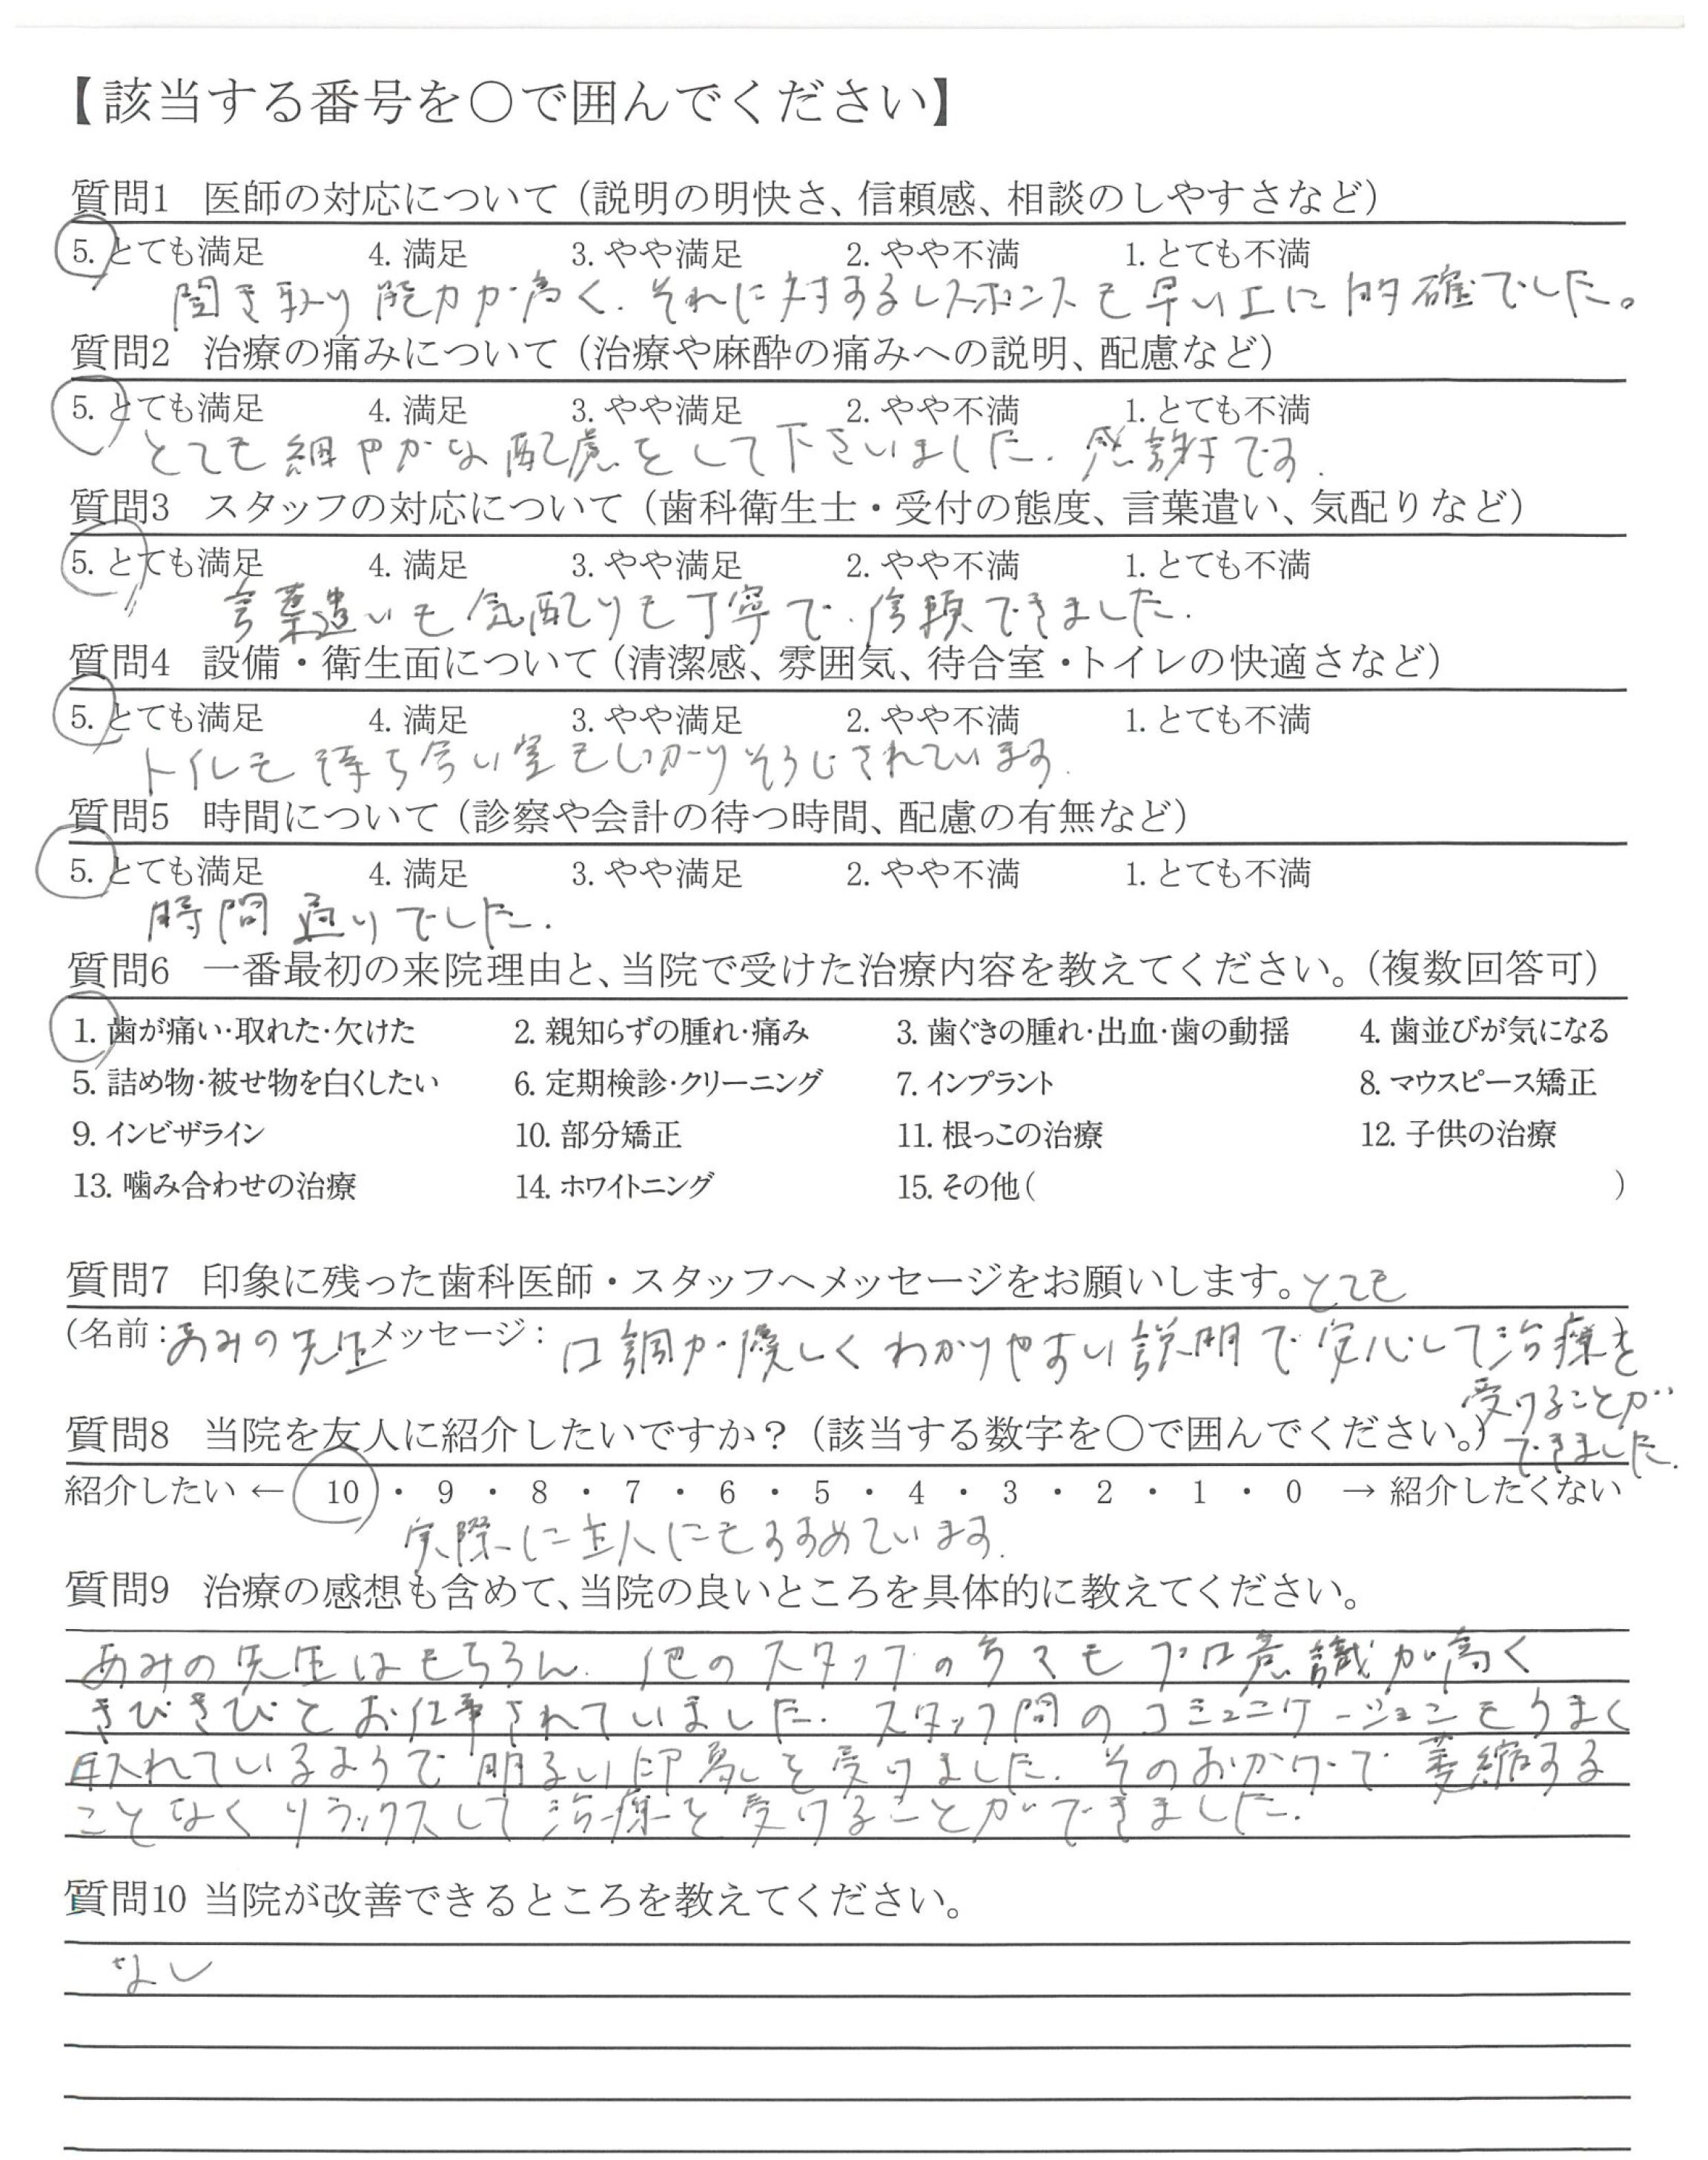 【該当する番号を○で囲んでください】
質問1 医師の対応について（説明の明快さ、信頼感、相談のしやすさなど）
5. とても満足 4. 満足 3. やや満足 2. やや不満 1. とても不満
聞き取り能力が高く、それに対するレスポンスも早い上に的確でした。
質問2 治療の痛みについて（治療や麻酔の痛みへの説明、配慮など）
5. とても満足 4. 満足 3. やや満足 2. やや不満 1. とても不満
とても細やかな配慮をして下さいました。感謝です。
質問3 スタッフの対応について（歯科衛生士・受付の態度、言葉遣い、気配りなど）
5. とても満足 4. 満足 3. やや満足 2. やや不満 1. とても不満
言葉遣いも気配りも丁寧で、信頼できました。
質問4 設備・衛生面について（清潔感、雰囲気、待合室・トイレの快適さなど）
5. とても満足 4. 満足 3. やや満足 2. やや不満 1. とても不満
トイレも待ち合い室もしっかりそうじされています。
質問5 時間について（診察や会計の待つ時間、配慮の有無など）
5. とても満足 4. 満足 3. やや満足 2. やや不満 1. とても不満
時間通りでした。
質問6 一番最初の来院理由と、当院で受けた治療内容を教えてください。（複数回答可）
1. 歯が痛い・取れた・欠けた 2. 親知らずの腫れ・痛み 3. 歯ぐきの腫れ・出血・歯の動揺 4. 歯並びが気になる
5. 詰め物・被せ物を白くしたい 6. 定期検診・クリーニング 7. インプラント 8. マウスピース矯正
9. インビザライン 10. 部分矯正 11. 根っこの治療 12. 子供の治療
13. 噛み合わせの治療 14. ホワイトニング 15. その他（ ）
質問7 印象に残った歯科医師・スタッフへメッセージをお願いします。とても
（名前：あみの先生 メッセージ：口調が優しくわかりやすい説明で安心して治療を
受けることが
できました。
質問8 当院を友人に紹介したいですか？（該当する数字を○で囲んでください。）
紹介したい ← 10 ・ 9 ・ 8 ・ 7 ・ 6 ・ 5 ・ 4 ・ 3 ・ 2 ・ 1 ・ 0 → 紹介したくない
実際に主人にもすすめています。
質問9 治療の感想も含めて、当院の良いところを具体的に教えてください。
あみの先生はもちろん、他のスタッフの方々もプロ意識が高く
きびきびとお仕事されていました。スタッフ間のコミュニケーションもうまく
取れているようで明るい印象を受けました。そのおかげで萎縮する
ことなくリラックスして治療を受けることができました。
質問10 当院が改善できるところを教えてください。
なし